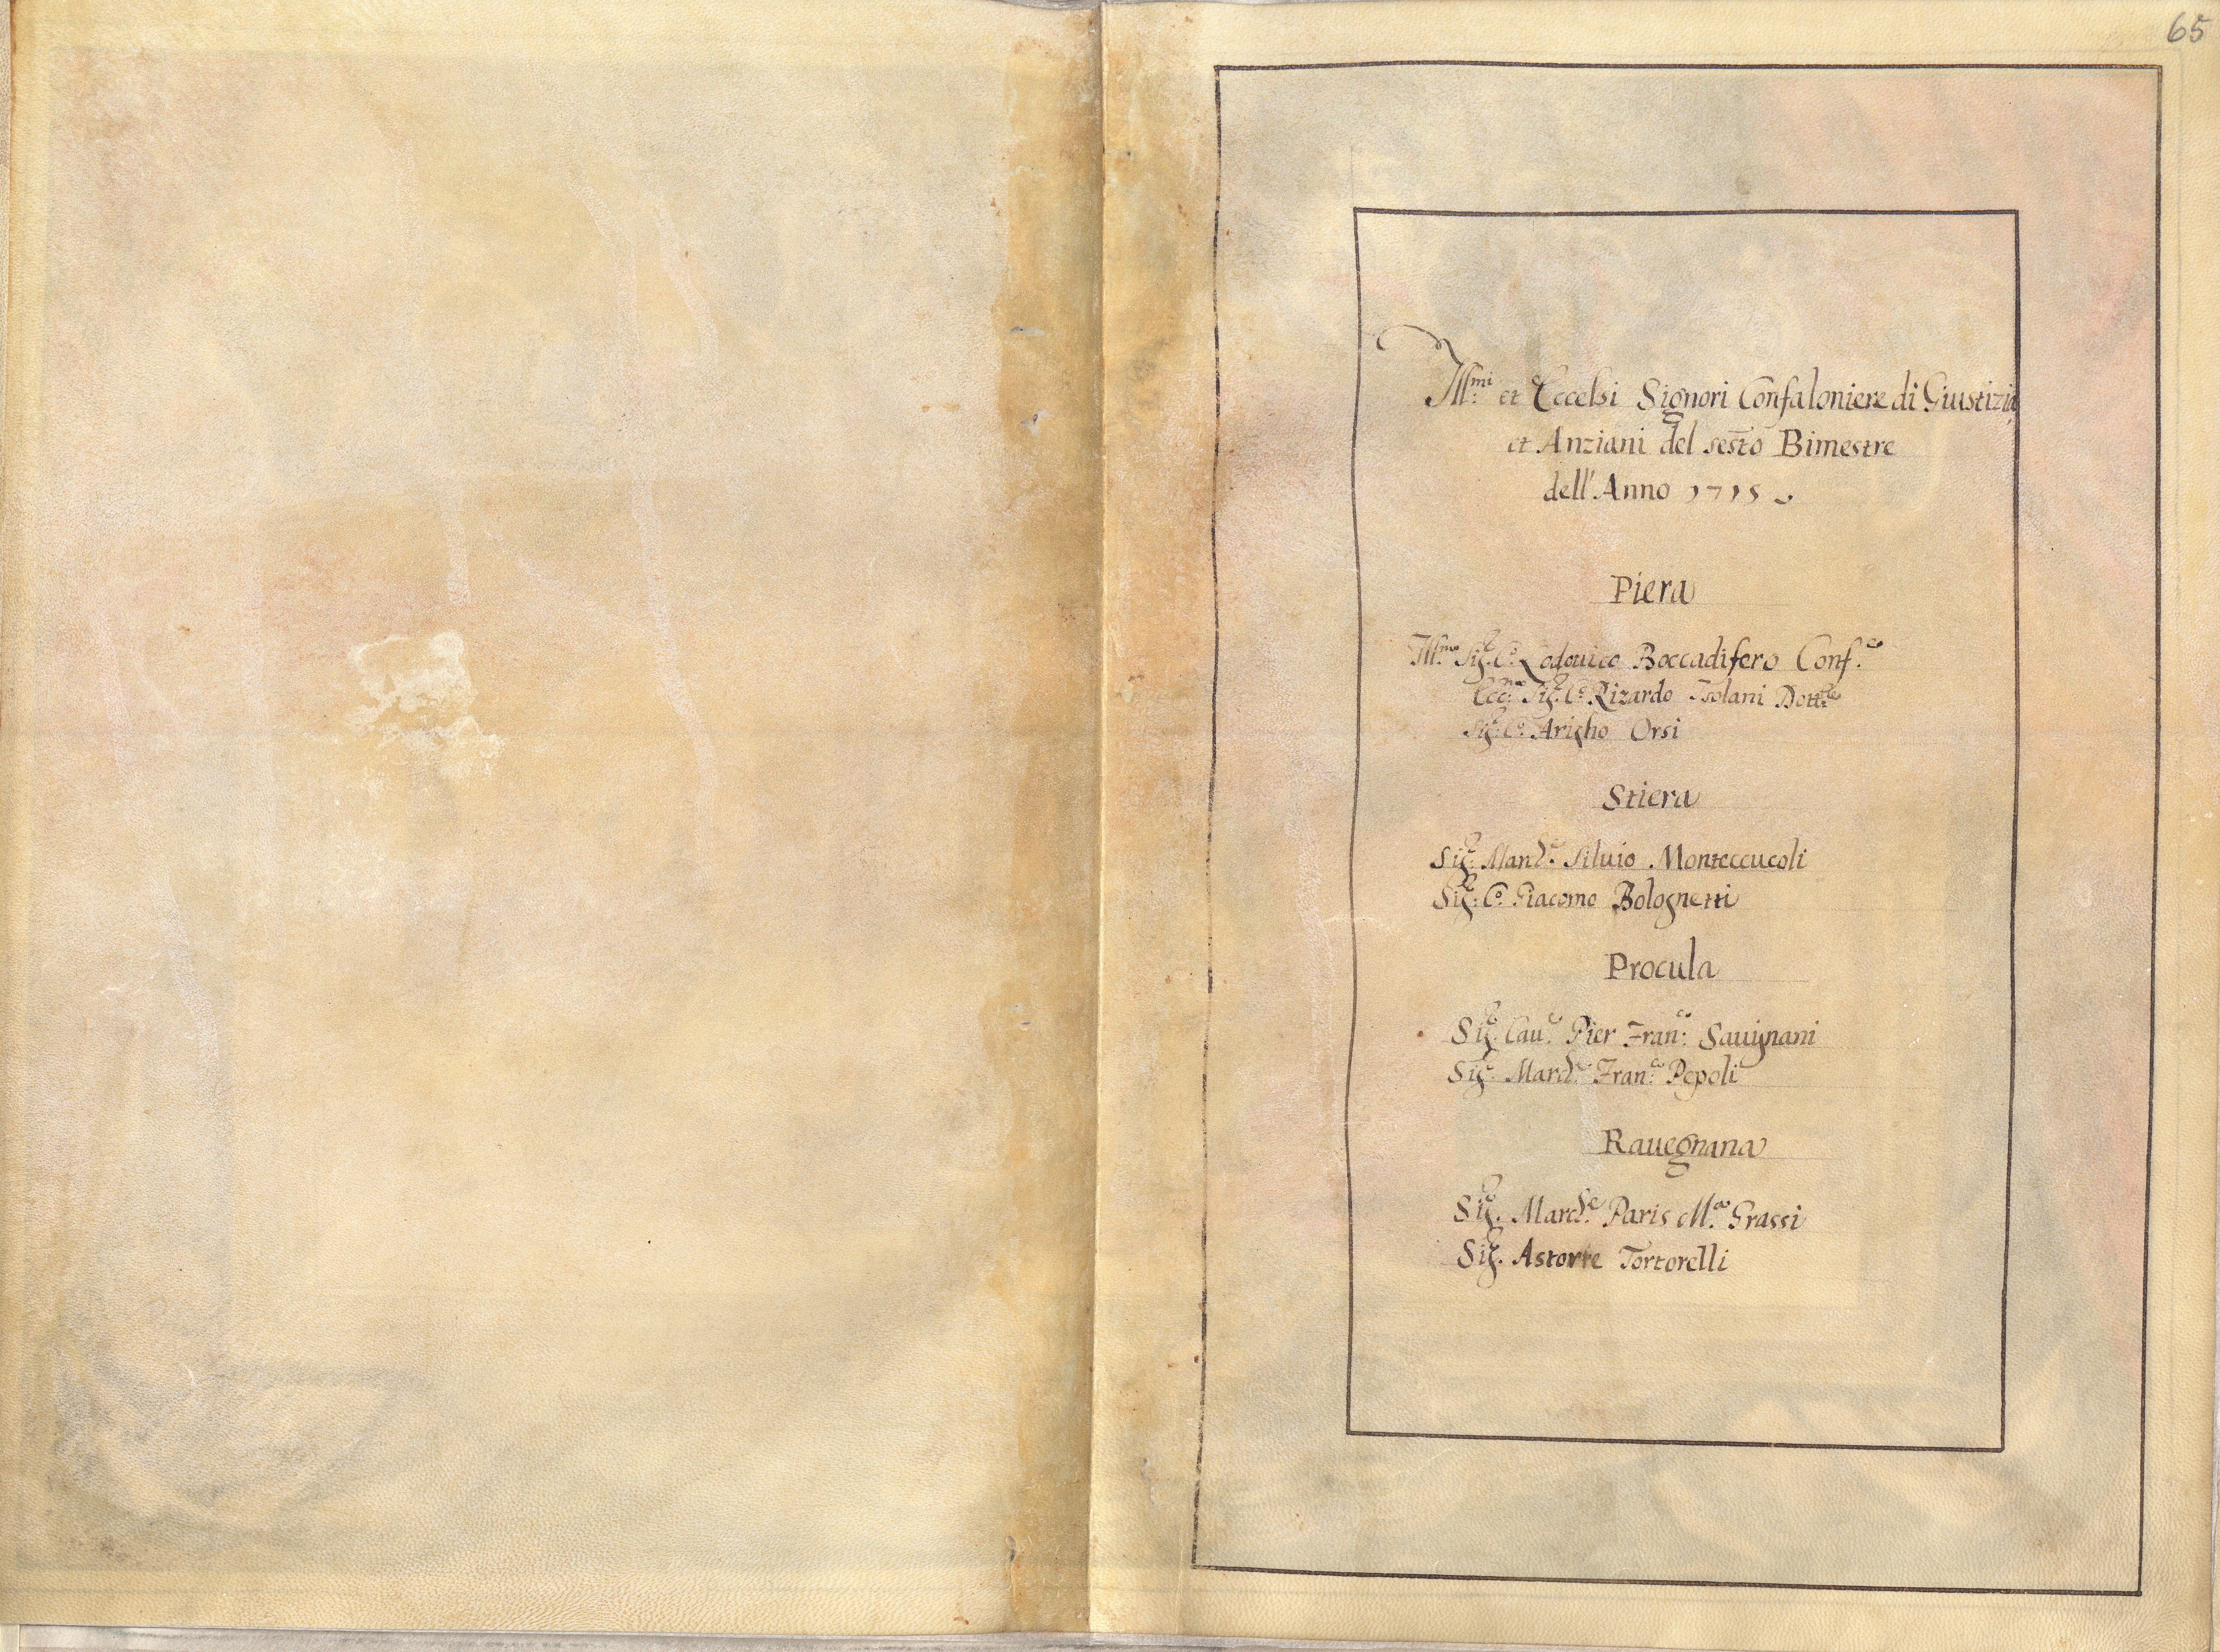 65
Ill:mi et Eccelsi Signori Confaloniere di Giustizia
et Anziani del sesto Bimestre
dell'Anno 1715
Piera
Ill:mo Sig:r Co: Lodouico Boccadifero Conf:re
Ecc:mo Sig:r Co: Rizardo Isolani Dott:re
Sig:r Co: Arigho Orsi
Stiera
Sig:r March:e Siluio Monteccucoli
Sig:r Co: Giacomo Bolognetti
Procula
Sig:r Cau:r Pier Fran:co Sauignani
Sig:r March:e Fran:co Pepoli
Rauegnana
Sig:r March:e Paris M:a Grassi
Sig:r Astorre Tortorelli